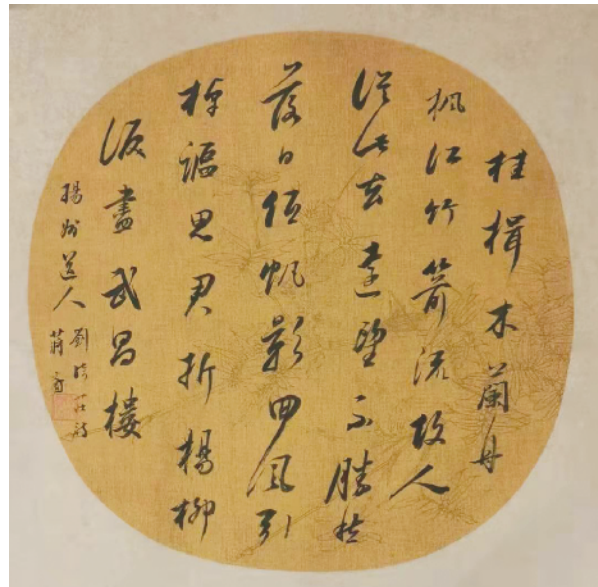 桂楫木蘭舟
楓江竹箭流故人
從此去遠望不勝愁
落日低帆影回風引
棹謳思君折楊柳
淚盡武昌樓
揚州送人
劉綺莊詩
蔣